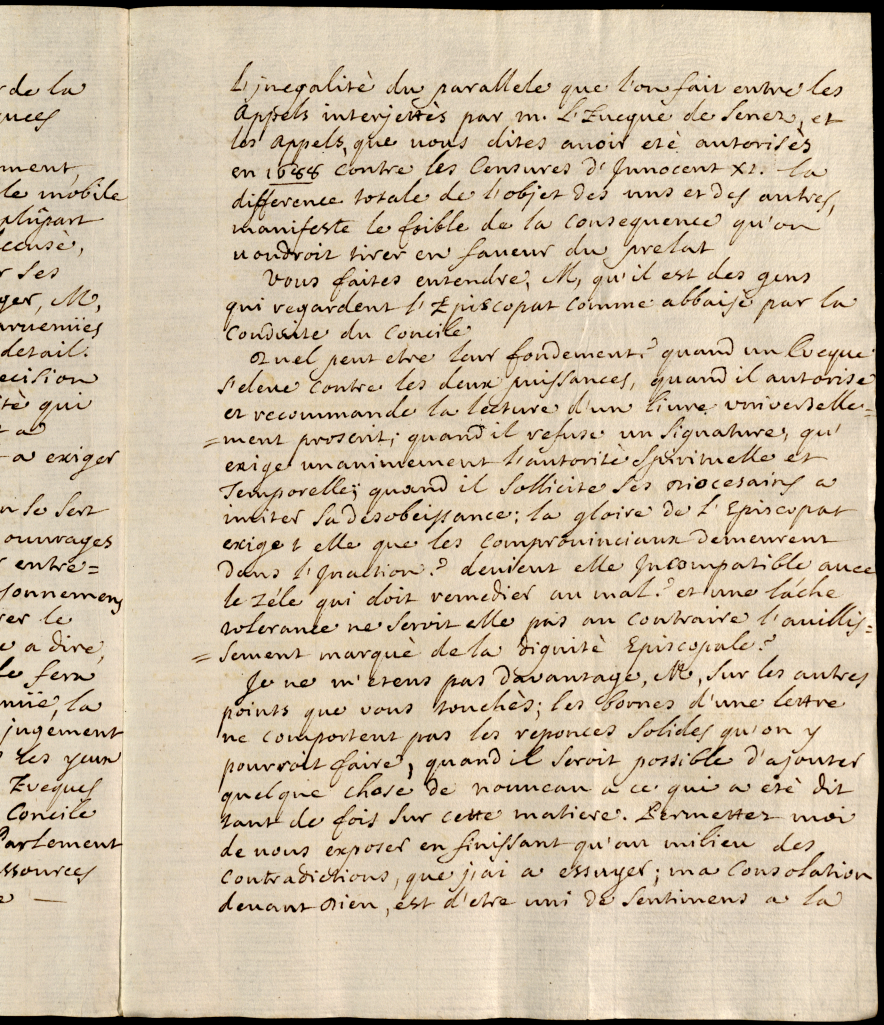 r de la
ques
nment,
le mobile
plûpart
ccusè,
r ses
ger, M,
arvenües
detail.
ecision
itè qui
t a
t a exiger
n se sert
ouvrages
r entre=
sonnemens
rer le
e a dire,
le fera
nüe, la
jugement
s les yeux
Eveques
Concile
Parlement
essources
e —
L'jnegalitè du parallele que l'on fait entre les
Appels interjettès par m. L'Eveque de Senez, et
les Appels, que vous dites avoir etè autorisès
en 1688 contre les Censures d'Jnnocent XI. la
difference totale de l'objet des uns et des autres,
manifeste le foible de la consequence qu'on
voudroit tirer en faveur du prelat
Vous faites entendre, M, qu'il est des gens
qui regardent l'Episcopat comme abbaisè par la
Conduite du Concile
Quel peut etre leur fondement? quand un Eveque
s'eleve contre les deux puissances, quand il autorise
et recommande la lecture d'un livre universelle=
=ment proscrit; quand il refuse un signature, qu'
exige unanimement l'autoritè Spirituelle et
Temporelle; quand il sollicite ses Diocesains a
imiter sa desobeissance; la gloire de l'Episcopat
exige t elle que les comprovinciaux demeurent
Dans l'Jnaction? devient elle Jncompatible avec
le zéle qui doit remedier au mal? et une lâche
tolerance ne seroit elle pas au contraire l'avillis=
=sement marquè de la Dignitè Episcopale?
Je ne m'etens pas Davantage, M, sur les autres
points que vous touchès; les bornes d'une lettre
ne comportent pas les reponces solides qu'on y
pourroit faire, quand il seroit possible d'ajouter
quelque chose de nouveau a ce qui a etè dit
tant de fois sur cette matiere. Permettez moi
de vous exposer en finissant qu'au milieu des
contradictions, que j'ai a essuyer; ma Consolation
devant Dieu, est d'etre uni de sentimens a la